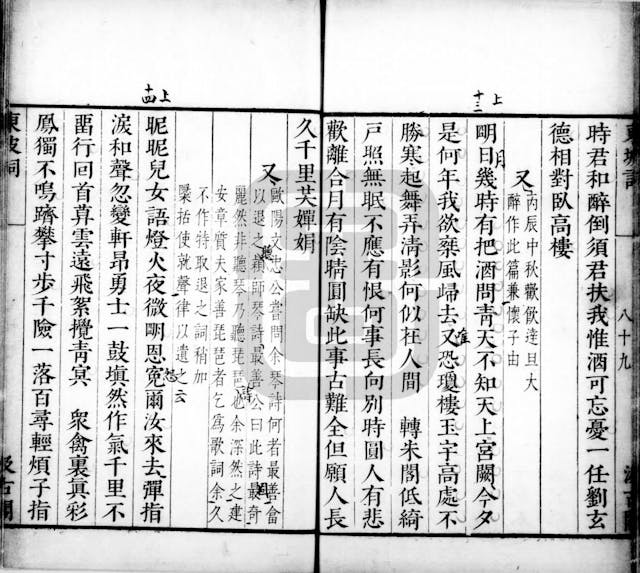 八十九
上
十三
時君和醉倒須君扶我惟酒可忘憂一任劉玄
德相對臥高樓
又
丙辰中秋歡飲達旦大
醉作此篇兼懷子由
明日幾時有把酒問靑天不知天上宮闕今夕
月
是何年我欲乘風歸去又恐瓊樓玉宇高處不
惟
勝寒起舞弄淸影何似在人間　轉朱閣低綺
戶照無眠不應有恨何事長向別時圓人有悲
歡離合月有陰晴圓缺此事古難全但願人長
上
十四
久千里共嬋娟
又
歐陽文忠公嘗問余琴詩何者最善畣
以退之穎師琴詩最善公曰此詩最奇
聽
麗然非聽琴乃聽琵琶也余深然之建
安章質夫家善琵琶者乞爲歌詞余久
不作特取退之詞稍加
檃括使就聲律以遺之云
昵昵兒女語燈火夜微明恩寃爾汝來去彈指
淚和聲忽變軒昂勇士一鼓塡然作氣千里不
畱行回首暮雲遠飛絮攪靑冥　衆禽裏眞彩
鳳獨不鳴躋攀寸步千險一落百尋輕煩子指
東坡詞
汲古閣